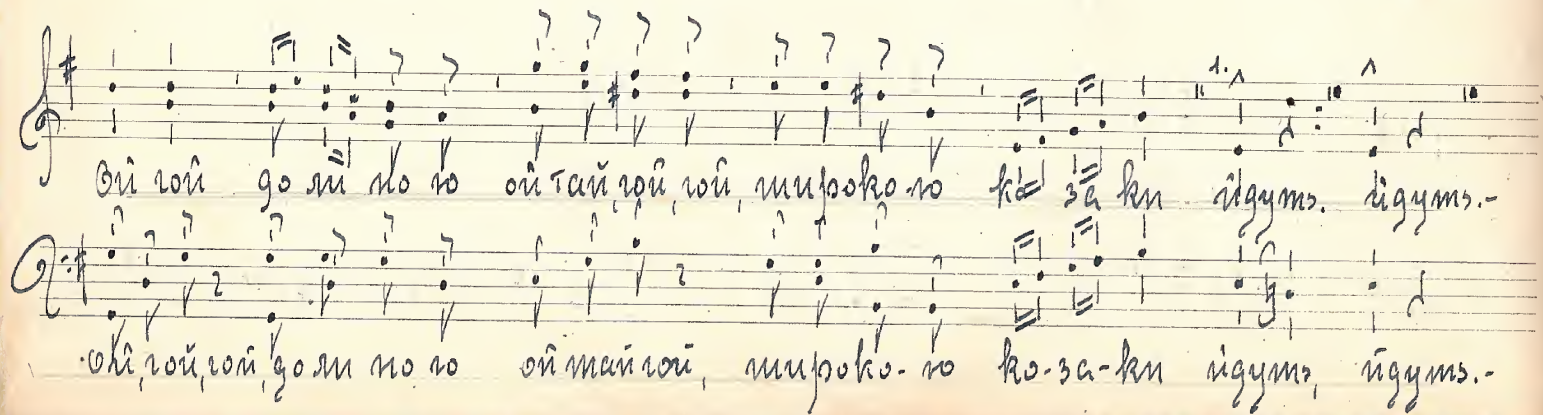 1.
Ой гой до ли но ю ой тай, гой, гой, широко-ю ка за ки йдутъ. йдутъ.-
Ой, гой, гой, до ли но ю ой тай гой, широко-ю ко-за-ки йдутъ, йдутъ.-